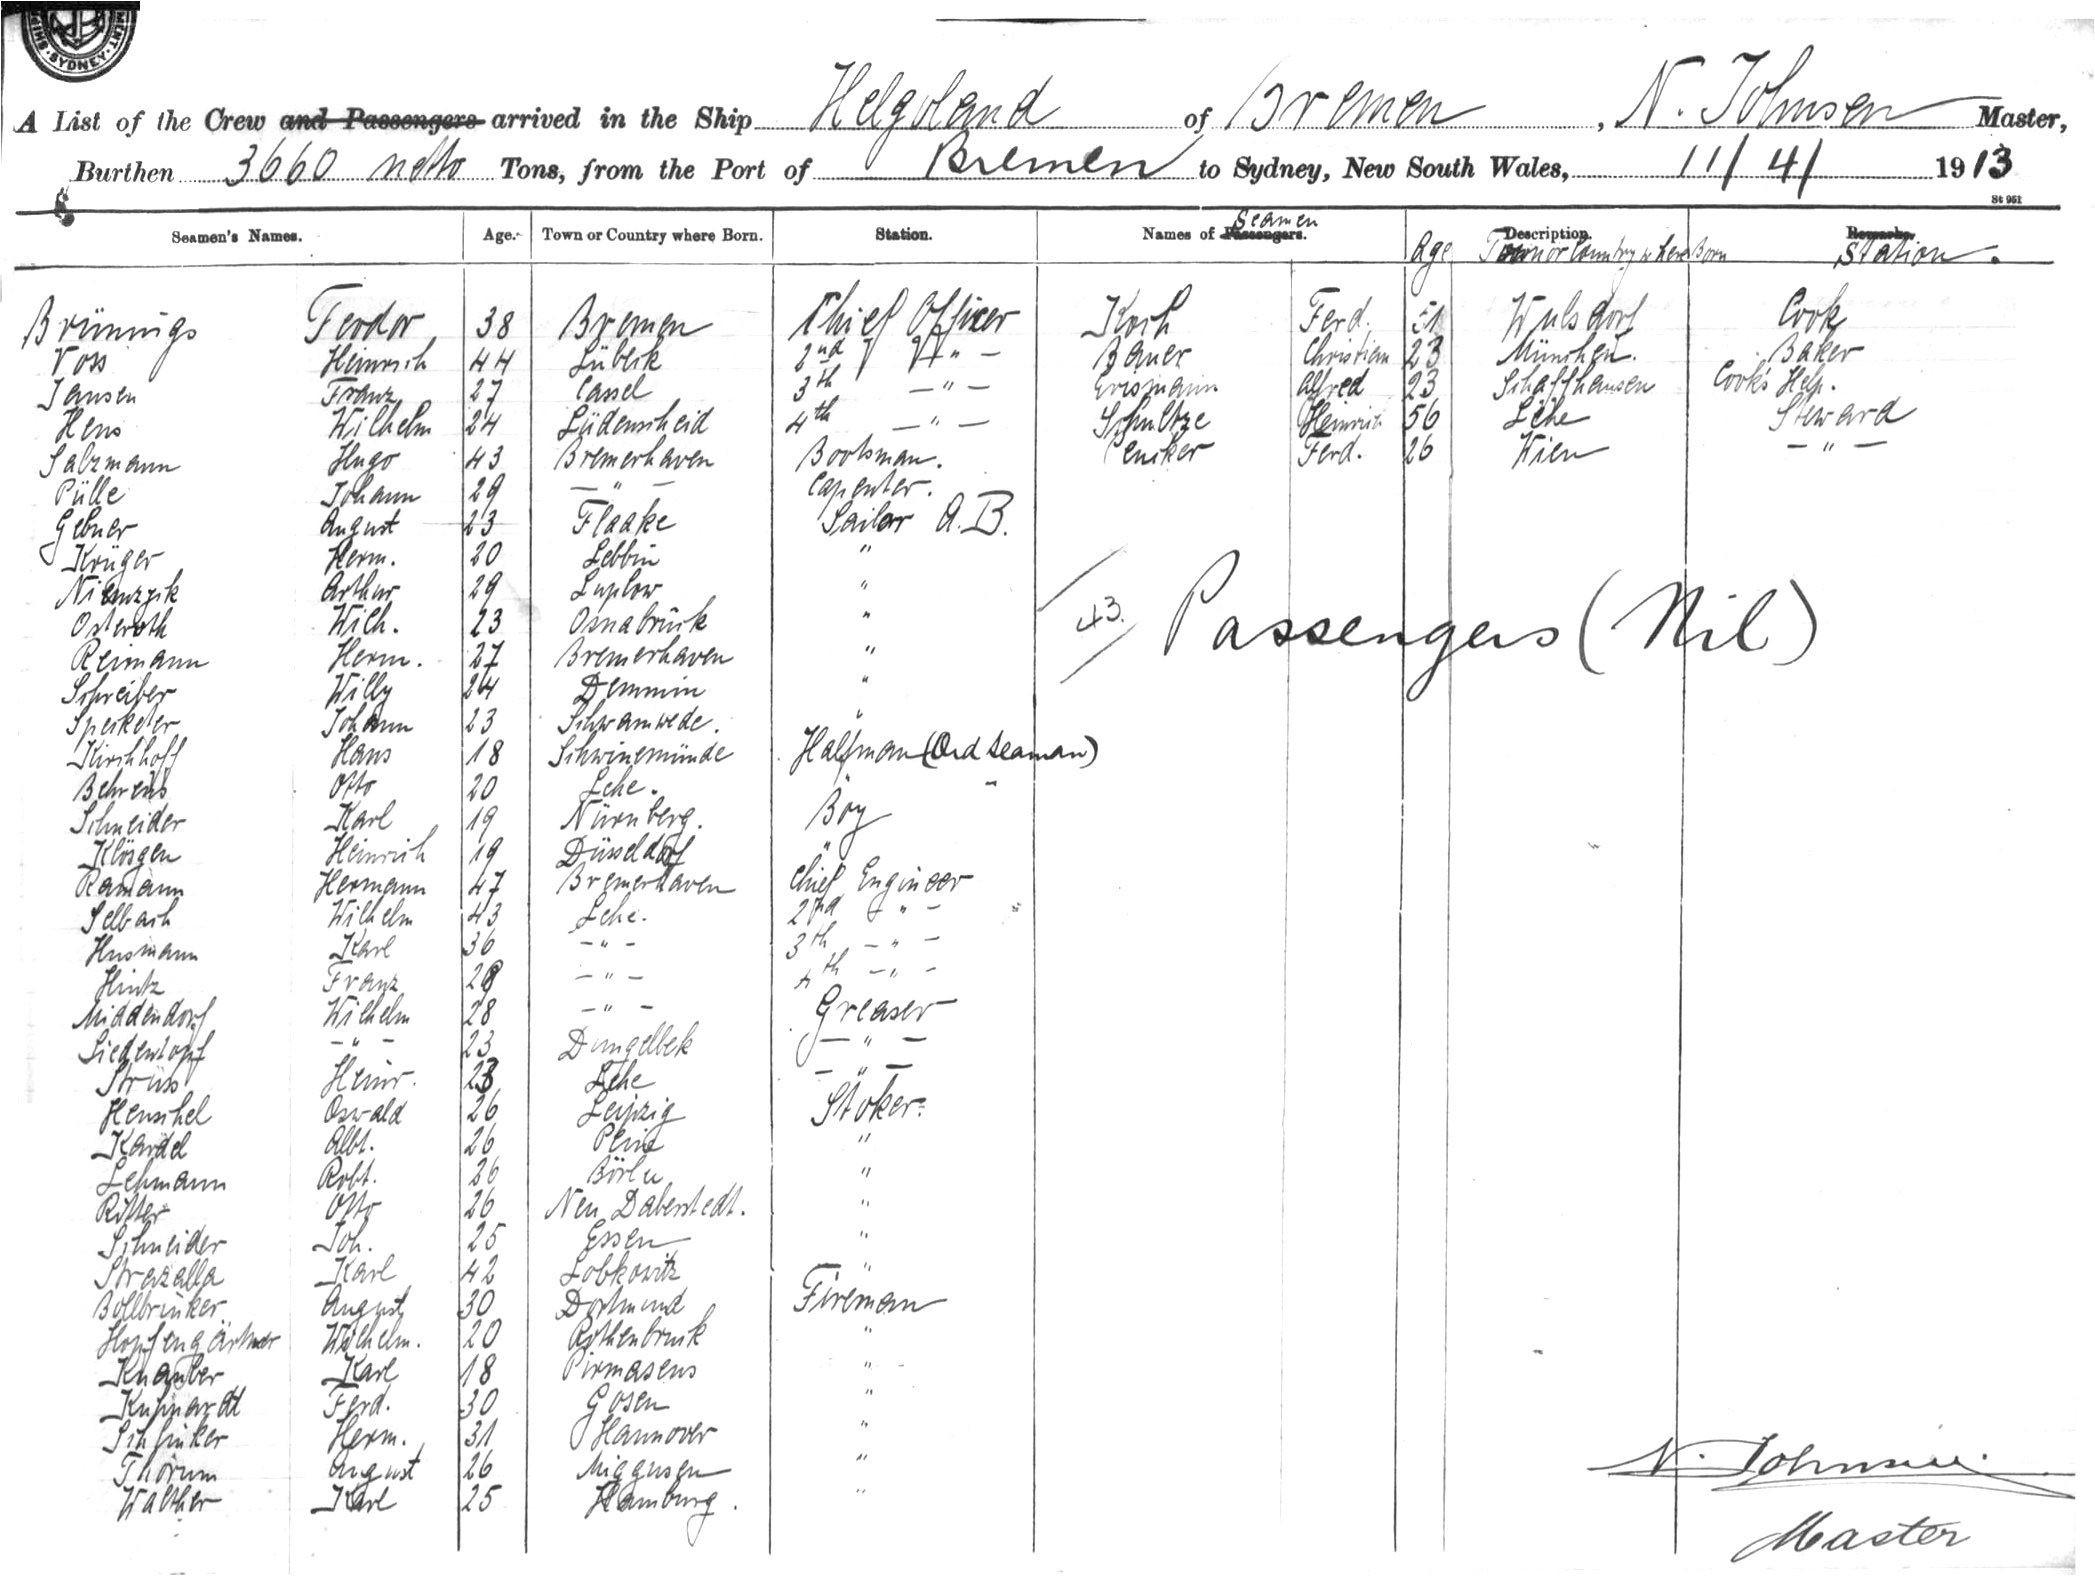 SHIP · SYDNEY · MENT
A List of the Crew and Passengers arrived in the Ship Helgoland of Bremen, N. Johnsen Master,
Burthen 3660 netto Tons, from the Port of Bremen to Sydney, New South Wales, 11/4/ 1913
St 951
Seamen's Names. Age. Town or Country where Born. Station. Names of Passengers. Seamen Age Description. Town or Country where Born Remarks. Station.
Brünnigs Feodor 38 Bremen Chief Officer Koch Ferd. 51 Wulsdorf Cook
Voss Heinrich 44 Lübeck 2nd — " — Bauer Christian 23 München. Baker
Jansen Franz 27 Cassel 3th — " — Erismann Alfred 23 Schaffhausen Cook's Help.
Hens Wilhelm 24 Lüdenscheid 4th — " — Schultze Heinrich 56 Lehe Steward
Salzmann Hugo 43 Bremerhaven Bootsman. Ferd. 26 Wien — " —
Pülle Johann 29 — " — Capenter.
Gebner August 23 Flaake Sailor A.B.
Krüger Herm. 20 Lebbin "
Niemzyk Arthur 29 Luplow "
Osteroth Wilh. 23 Osnabrück "
Reimann Herm. 27 Bremerhaven "
Schreiber Willy 24 Demmin "
Specketer Johann 23 Schwanwede. "
Kirchhoff Hans 18 Schwinemünde Halfman (Ord seaman)
Behrens Otto 20 Lehe. "
Schneider Karl 19 Nürnberg. Boy
Klösgen Heinrich 19 Düsseldorf "
Ramann Hermann 47 Bremerhaven Chief Engineer
Selbach Wilhelm 43 Lehe. 2nd - " -
Husmann Karl 36 - " - 3th - " -
Hintz Franz 28 - " - 4th - " -
Middendorf Wilhelm 28 - " - Greaser
Siedentopf - " - 23 Dungelbek — " —
Strüss Heinr. 23 Lehe — " —
Henschel Oswald 26 Leipzig Stoker.
Kardel Albt. 26 Peine "
Lehmann Robt. 26 Börln "
Ritter Otto 26 Neu Daberstedt. "
Schneider Joh. 25 Essen "
Strazalla Karl 42 Lobkowitz "
Bollbrinker August 30 Dortmund Fireman
Hopfengärtner Wilhelm. 20 Rothenbruck "
Knauber Karl 18 Pirmasens "
Kuhnardt Ferd. 30 Gosen "
Schfinker Herm. 31 Hannover "
Thorum August 26 Miggusen "
Walther Karl 25 Hamburg. "
43. Passengers (Nil)
N. Johnsen
Master